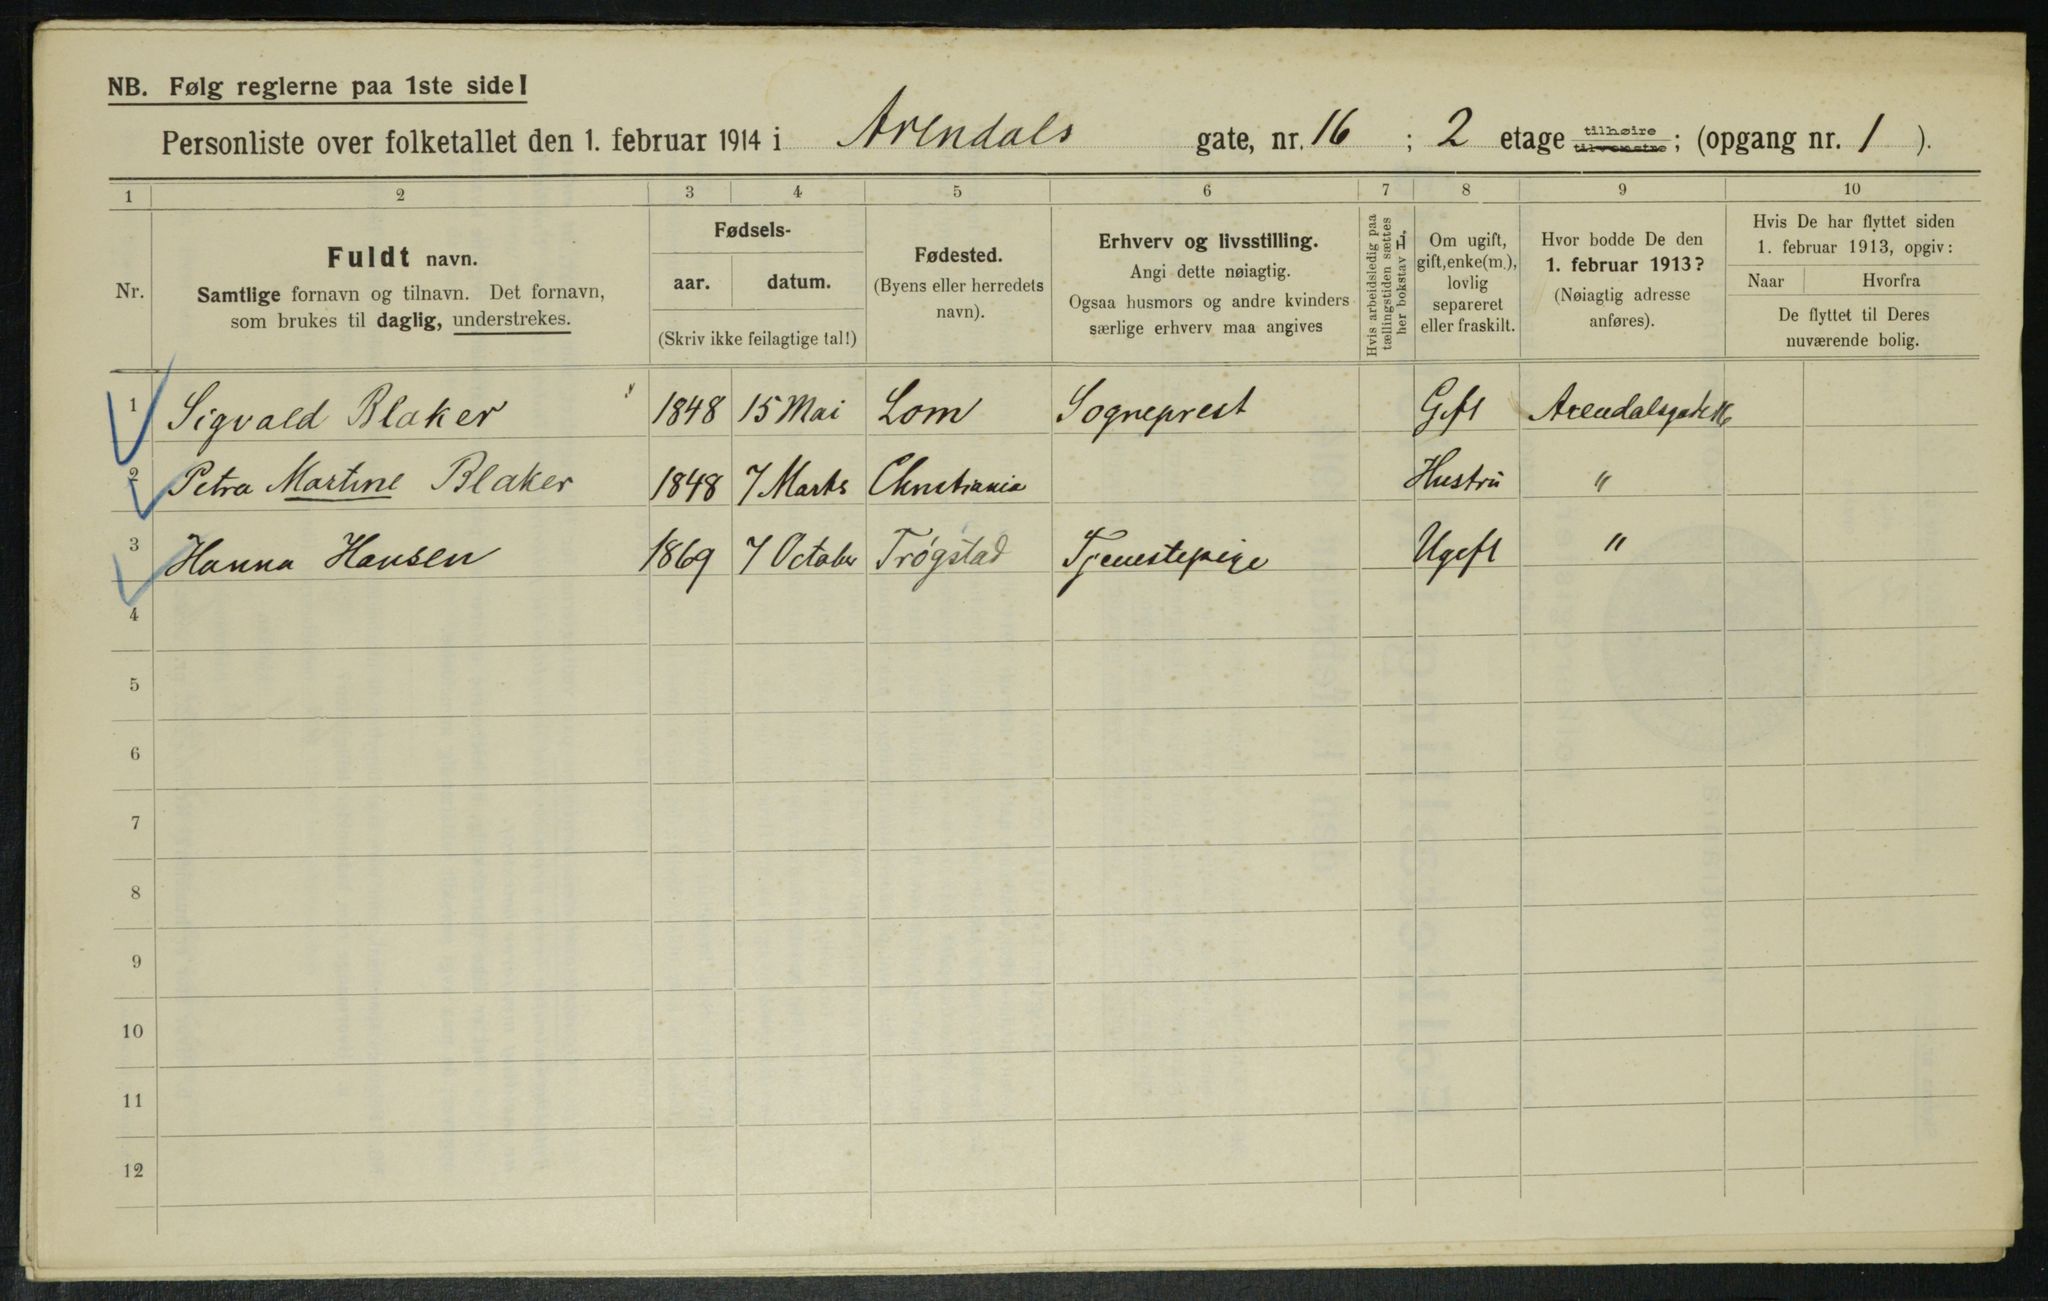 NB. Følg reglerne paa 1ste side!
Personliste over folketallet den 1. februar 1914 i Arendals gate, nr. 16 ; 2 etage tilhøire tilvenstre ; (opgang nr. 1 ).
1 2 3 4 5 6 7 8 9 10
Nr.
Fuldt navn.
Samtlige fornavn og tilnavn. Det fornavn,
som brukes til daglig, understrekes.
Fødsels-
aar. datum.
(Skriv ikke feilagtige tal!)
Fødested.
(Byens eller herredets
navn).
Erhverv og livsstilling.
Angi dette nøiagtig.
Ogsaa husmors og andre kvinders
særlige erhverv maa angives
Hvis arbeidsledig paa
tællingstiden sættes
her bokstav L.
Om ugift,
gift, enke(m.),
lovlig
separeret
eller fraskilt.
Hvor bodde De den
1. februar 1913?
(Nøiagtig adresse
anføres).
Hvis De har flyttet siden
1. februar 1913, opgiv:
Naar Hvorfra
De flyttet til Deres
nuværende bolig.
1 Sigvald Blaker 1848 15 Mai Lom Sogneprest Gift Arendalsgade 16
2 Petra Martine Blaker 1848 7 Marts Christiania Hustru "
3 Hanna Hansen 1869 7 October Trøgstad Tjenestepige Ugift "
4
5
6
7
8
9
10
11
12